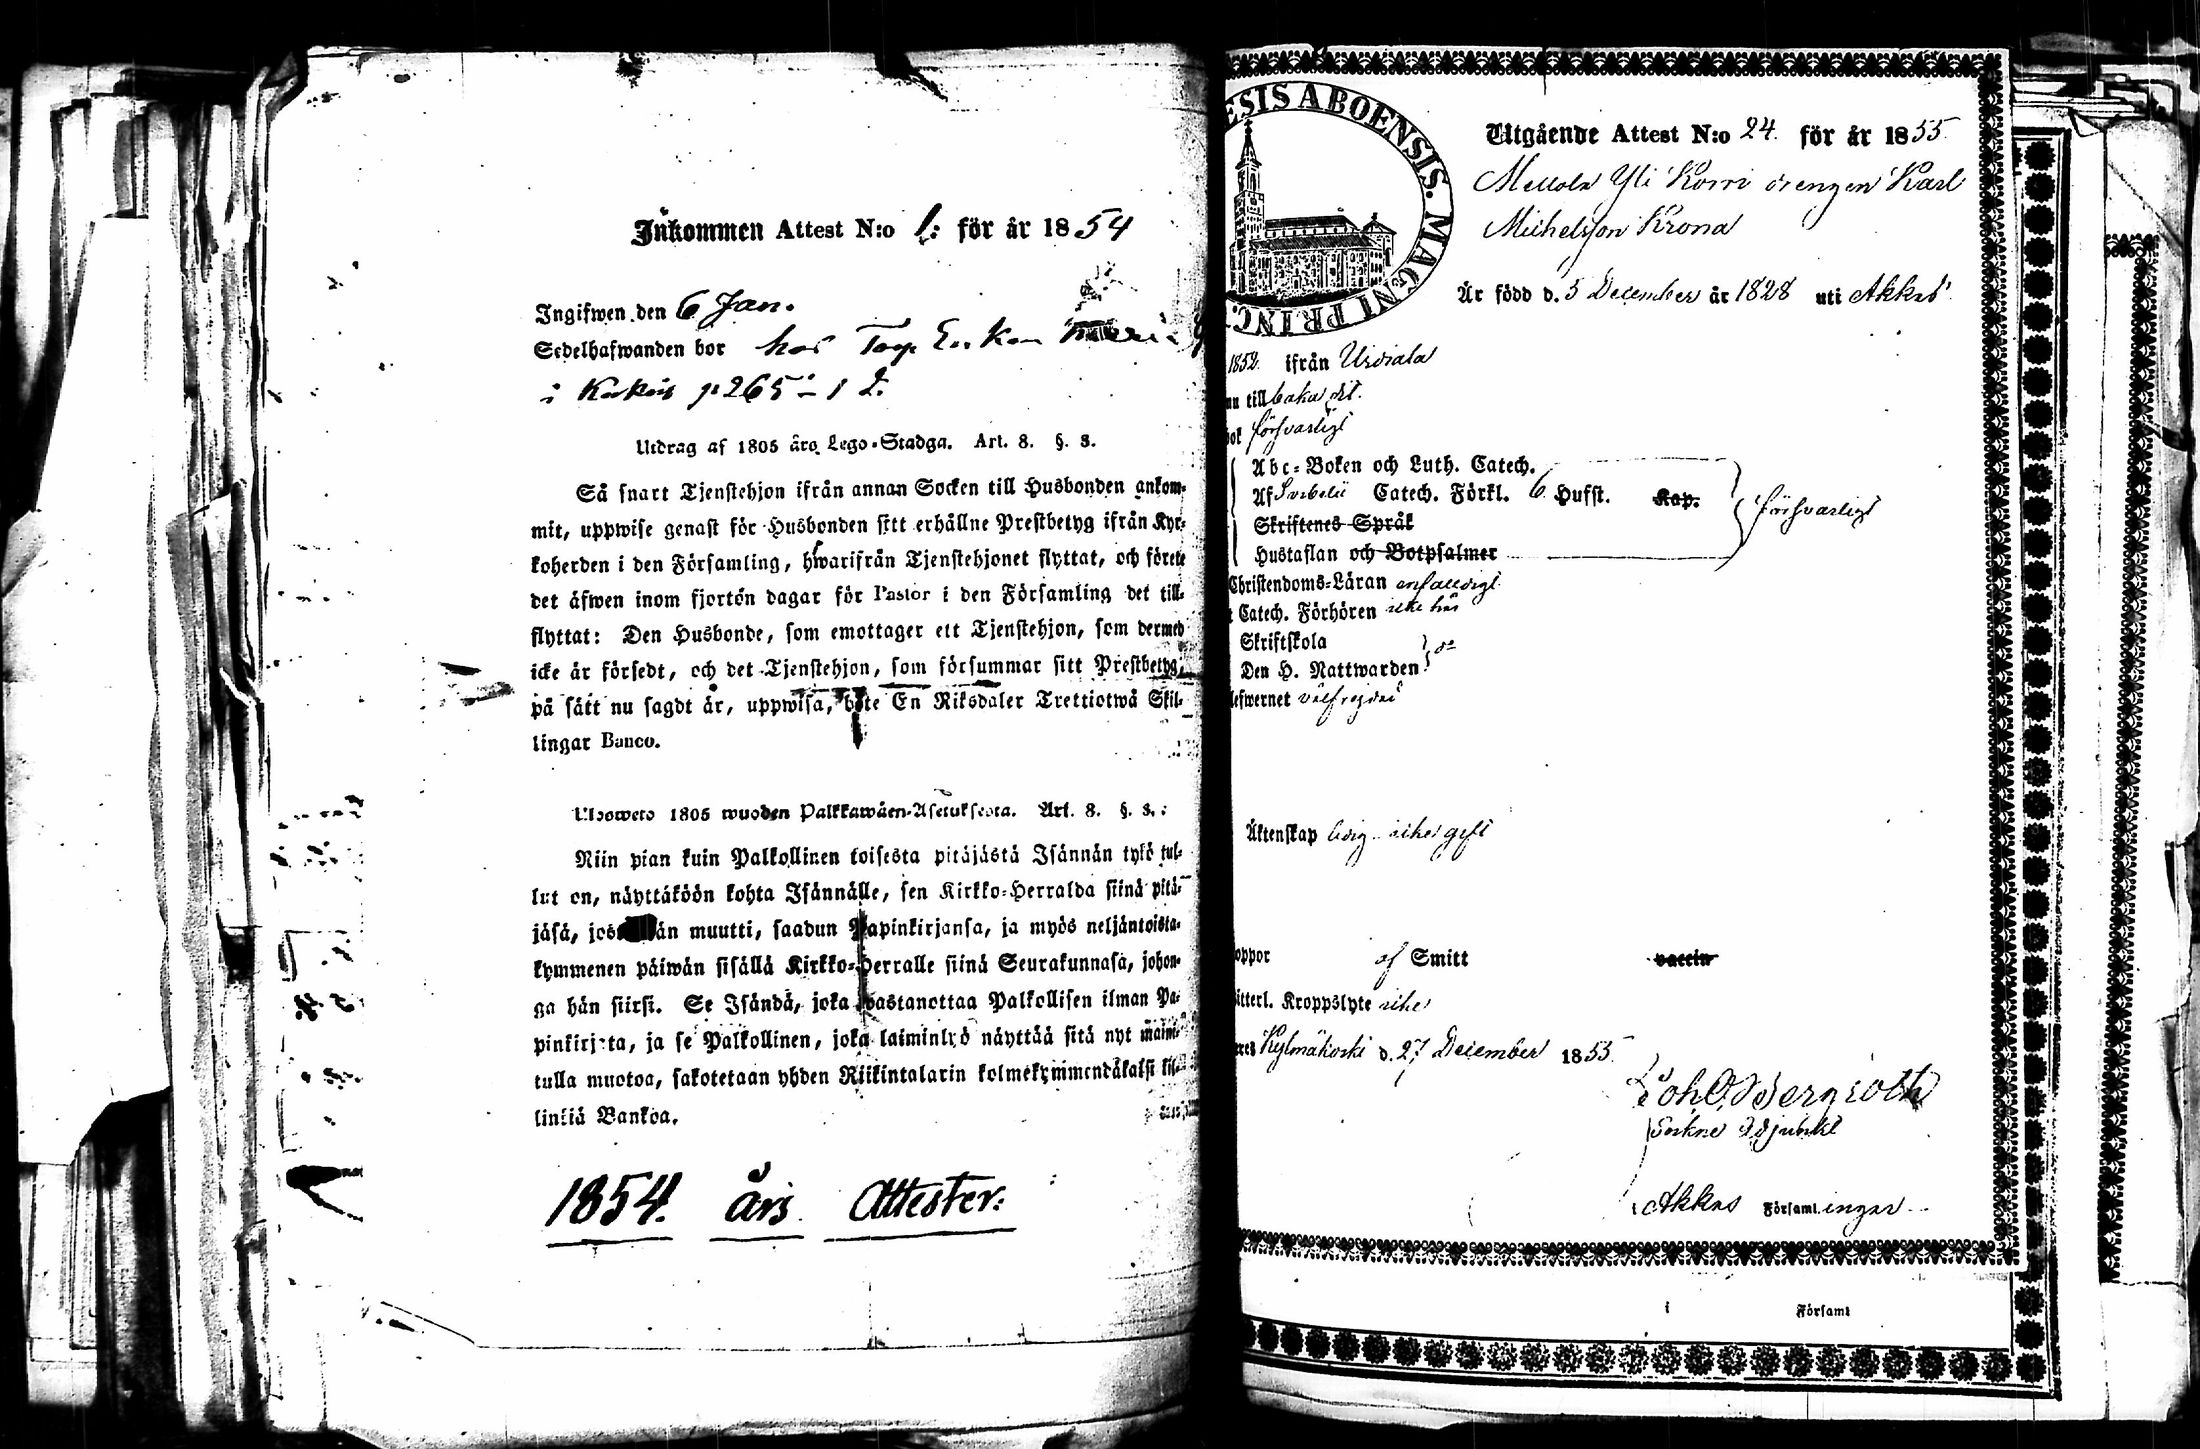 Inkommen Attest N:o 1: för år 1854
Ingifwen den 6 Jan.
Sedelhafwanden bor hos Torp
i p 265
Utdrag af 1805 års Lego-Stadga. Art. 8. §. 3.
Så snart Tjenstehjon ifrån annan Socken till Husbonden ankom-
mit, uppwise genast för Husbonden sitt erhållne Prestbetyg ifrån Kyr-
koherden i den Församling, hwarifrån Tjenstehjonet flyttat, och förete
det äfwen inom fjorton dagar för Pastor i den Församling det till-
flyttat: Den Husbonde, som emottager ett Tjenstehjon, som dermed
icke är försedt, och det Tjenstehjon, som försummar sitt Prestbetyg,
på sätt nu sagdt är, uppwisa, böte En Riksdaler Trettiotwå Skil-
lingar Banco.
Ulosweto 1805 wuoden Palkkawäen-Asetuksesta. Art. 8. §. 3.
Niin pian kuin Palkollinen toisesta pitäjästä Isännän tykö tul-
lut on, näyttäköön kohta Isännälle, sen Kirkko-Herralda siinä pitä-
jäsä, josta hän muutti, saadun Papinkirjansa, ja myös neljäntoista-
kymmenen päiwän sisällä Kirkko-Herralle siinä Seurakunnasa, johon-
ga hän siirsi. Se Isändä, joka wastanottaa Palkollisen ilman Pa-
pinkirjata, ja se Palkollinen, joka laiminlyö näyttää sitä nyt maini-
tulla muotoa, sakotetaan yhden Riikintalarin kolmekymmendäkaksi kil-
linkiä Bankoa.
1854. års Attester:
ESIS ABOENSIS. MAGNI PRINC.
Utgående Attest N:o 24. för år 1855
Mellola Yli Korri drengen Karl
Michelsson Krona
Är född d. 5 December år 1828 uti Akkas
1852. ifrån Urdiala
till baka dit.
försvarligt
Abc-Boken och Luth. Catech.
Af Svebelii Catech. Förkl. 6 Hufst. Kap. försvarligt
Skriftenes Språk
Hustaflan och Botpsalmer
Christendoms-Läran enfalldigt
Catech. Förhören icke här
Skriftskola
Den H. Nattwarden do
lefwernet välfrejdad
Äktenskap ledig icke gift
koppor af Smitt vaccin
itterl. Kroppslyte icke
Kylmäkoski d. 27 December 1855.
Joh. O. Bergroth
Sockne Adjunkt
Akkas Församl.ingar
i Församl